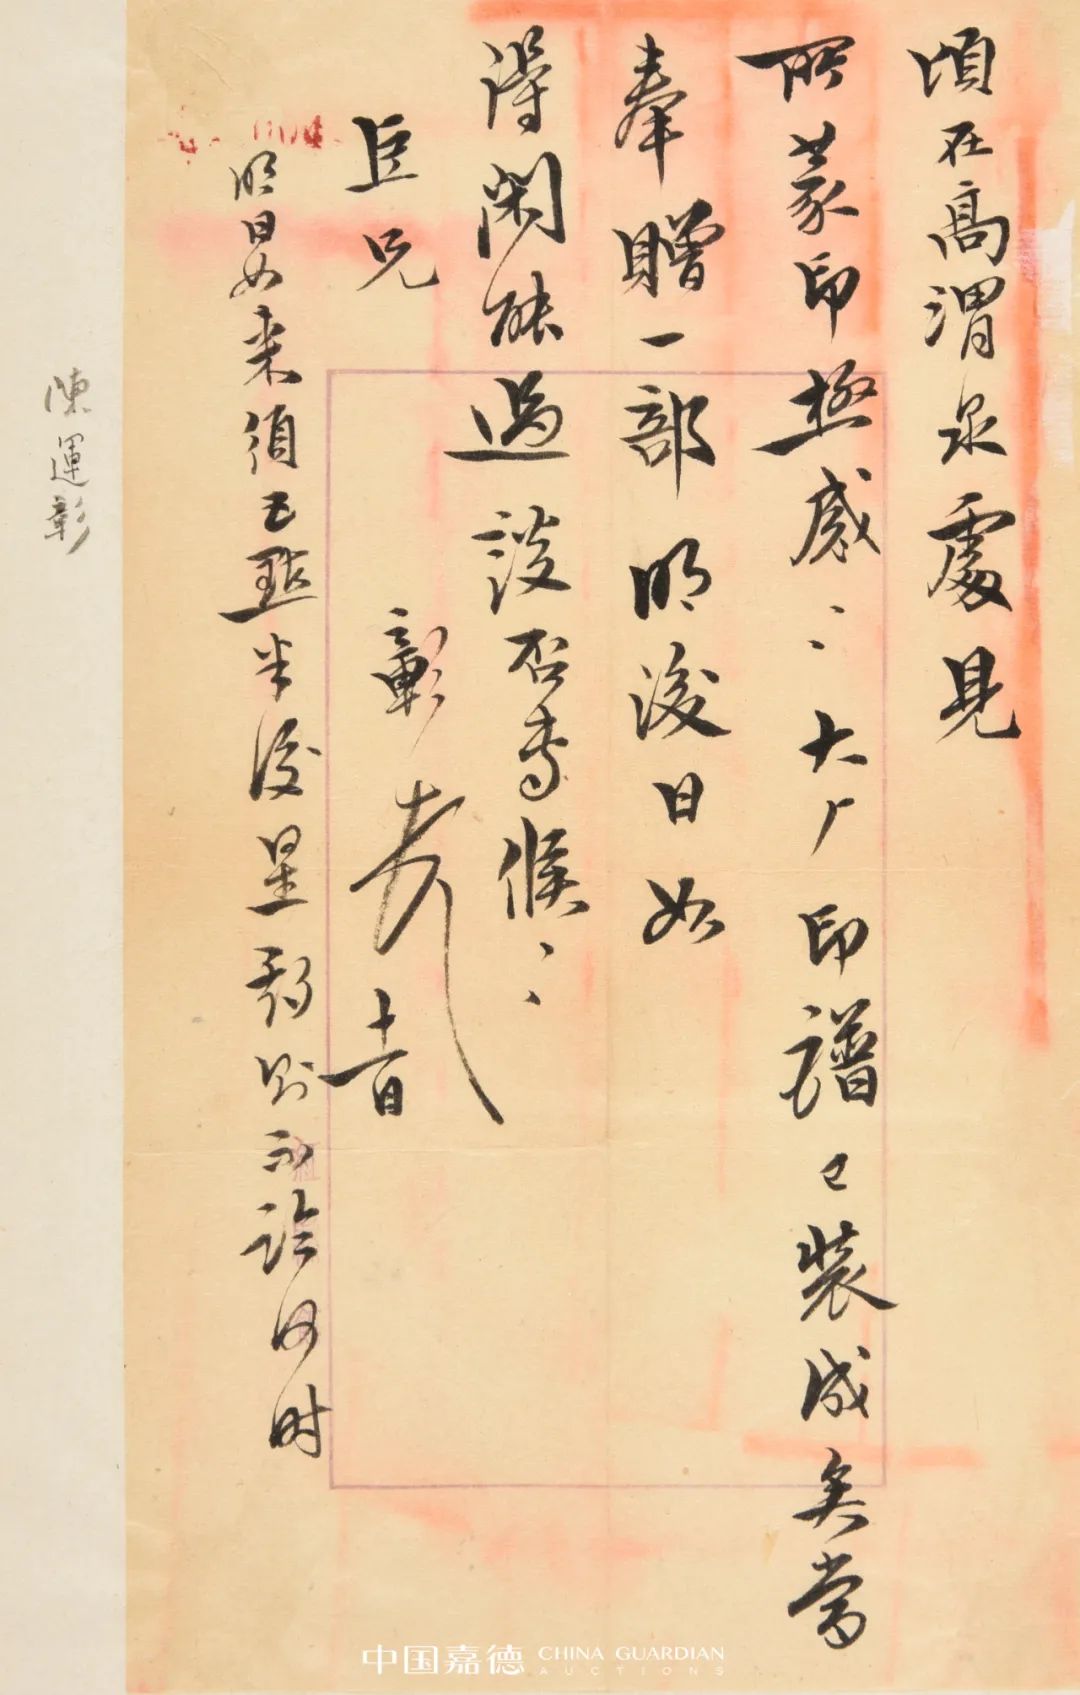 頃在高渭泉處見
所篆印極感〻大厂印譜已裝成矣當
奉贈一部明後日如
得閑能過談否專候〻
巨兄
彰
十一日
明日如來須五點半後星期則不論何时
陳運彰
中国嘉德 CHINA GUARDIAN
AUCTIONS